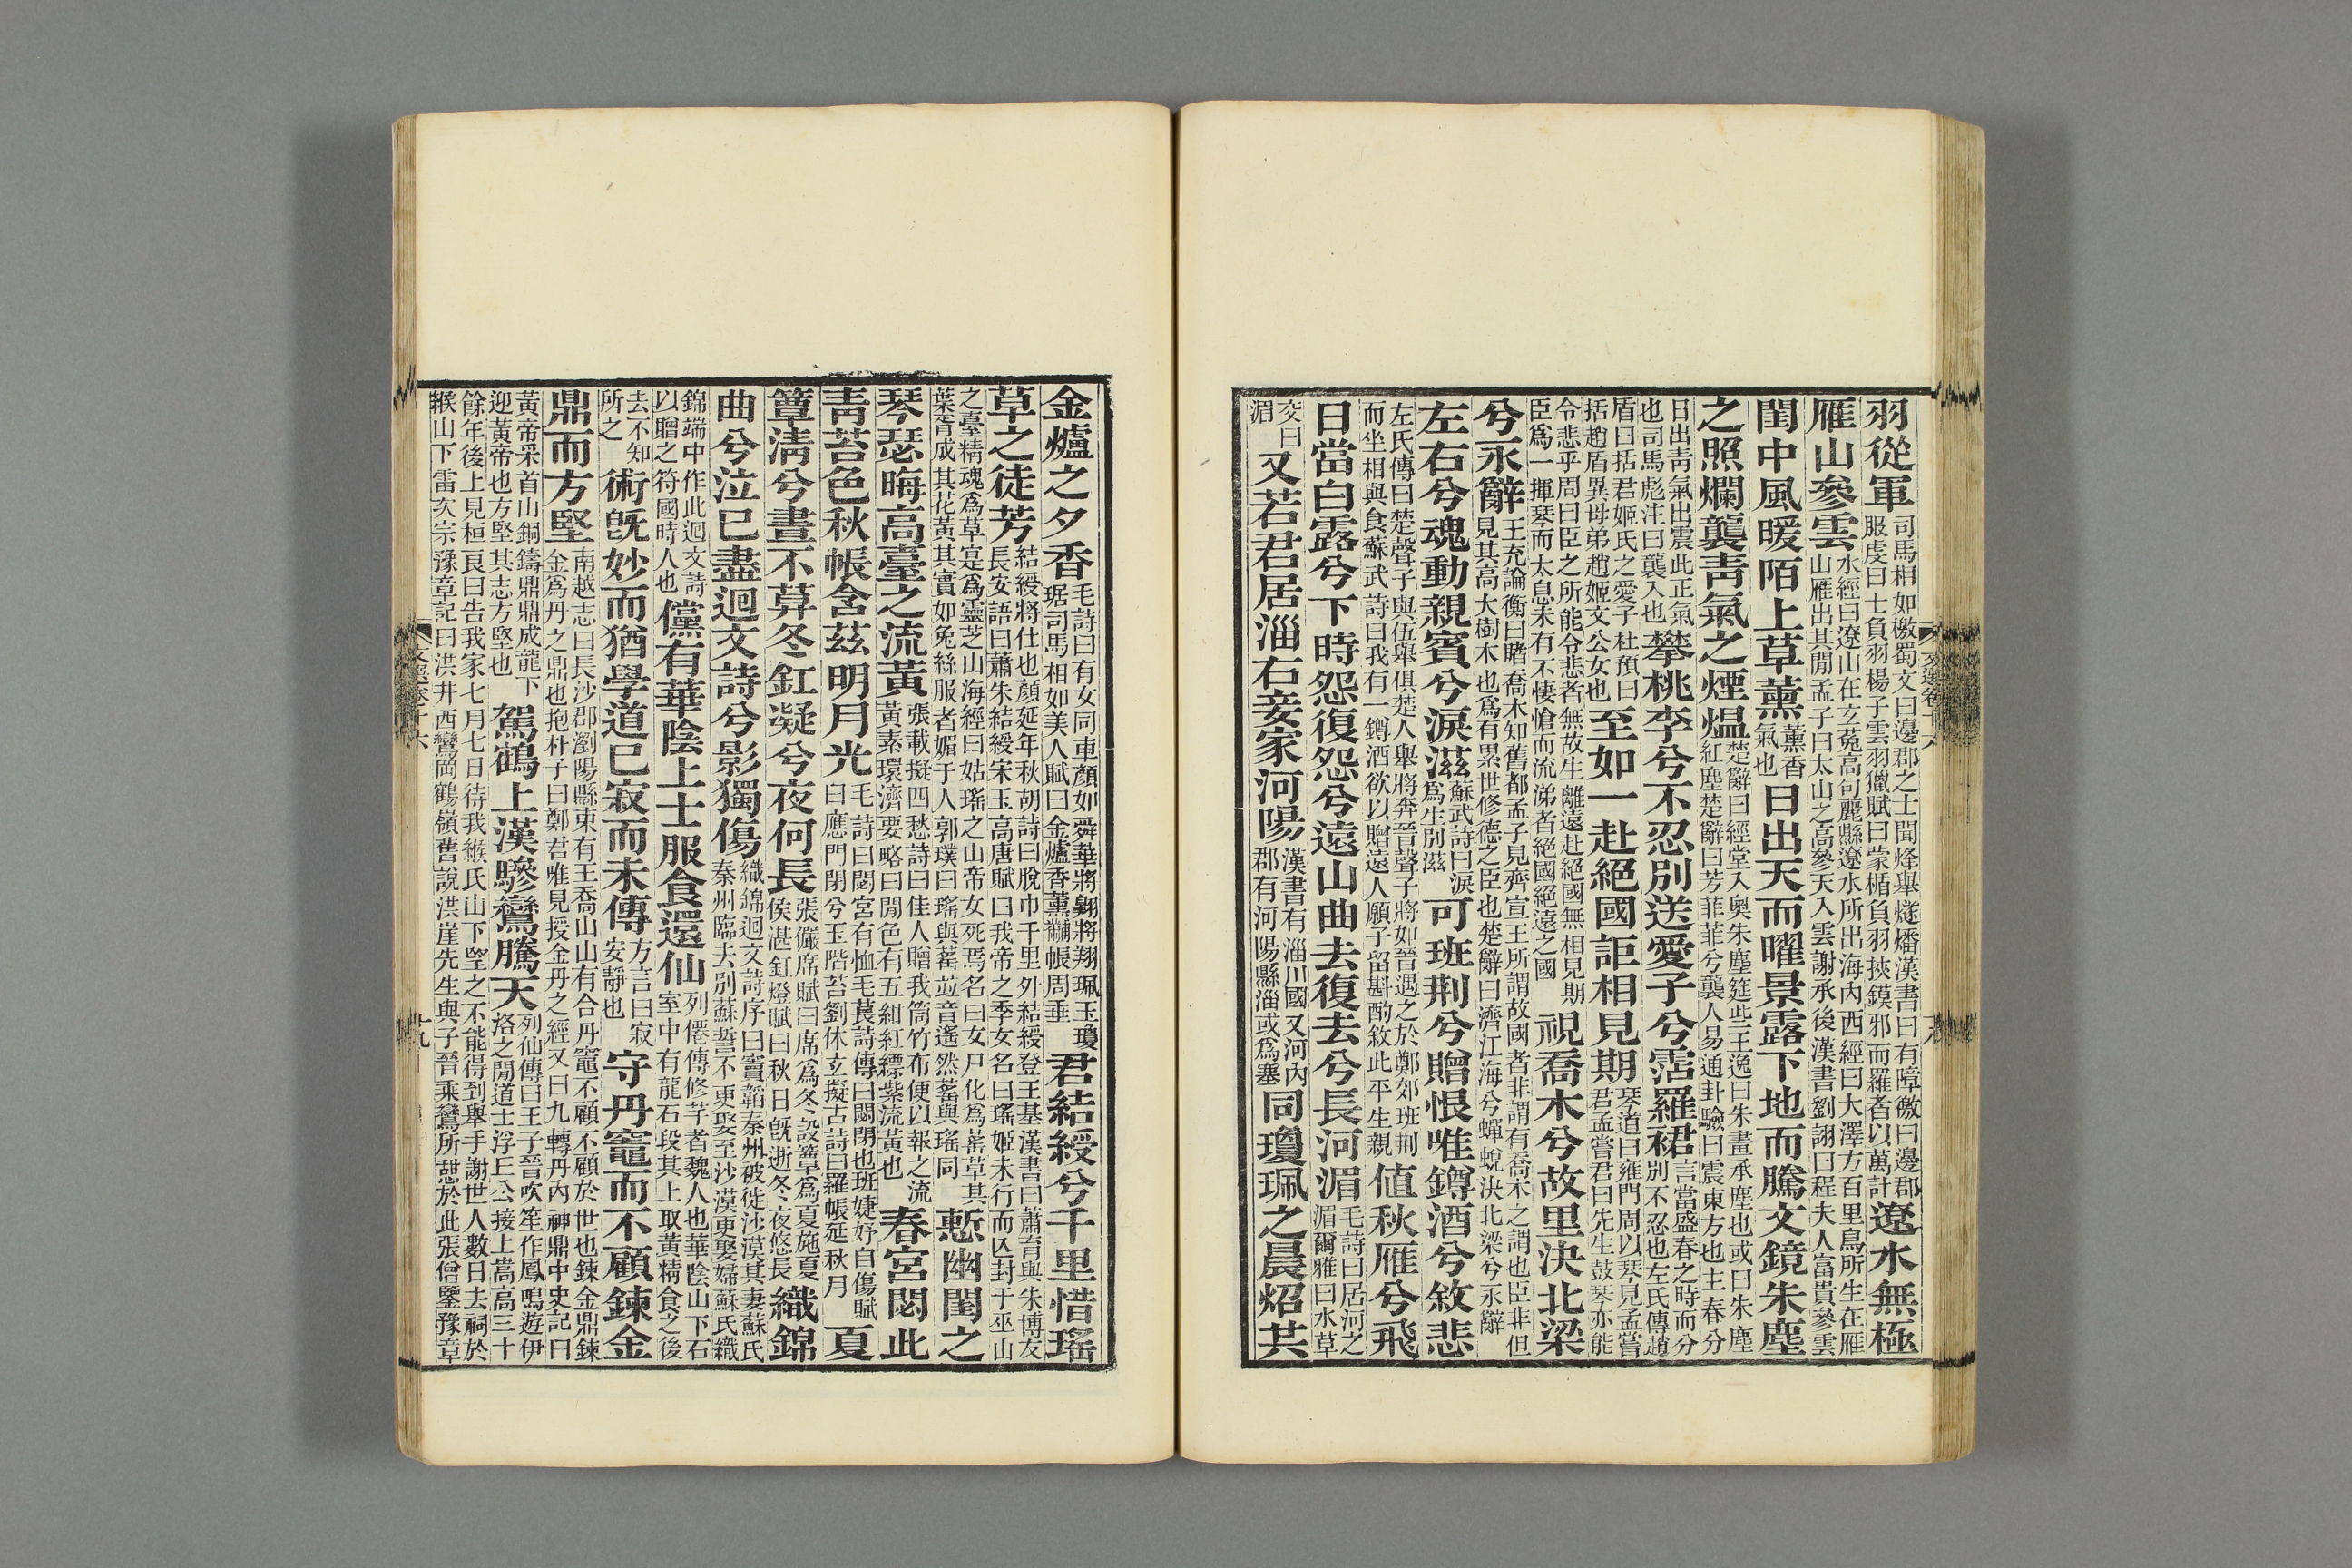 羽從軍司馬相如檄蜀文曰邊郡之士聞烽舉燧燔漢書曰有障徼曰邊郡服虔曰士負羽楊子雲羽獵賦曰蒙楯負羽挾鏌邪而羅者以萬計遼水無極
雁山參雲水經曰遼山在玄菟高句麗縣遼水所出海內西經曰大澤方百里鳥所生在雁山雁出其閒孟子曰太山之高參天入雲謝承後漢書劉詡曰程夫人富貴參雲
閨中風暖陌上草薰薰香氣也日出天而曜景露下地而騰文鏡朱塵
之照爛襲青氣之煙熅楚辭曰經堂入奧朱塵筵些王逸曰朱畫承塵也或曰朱塵紅塵楚辭曰芳菲菲兮襲人易通卦驗曰震東方也主春分
日出青氣出震此正氣也司馬彪注曰襲入也攀桃李兮不忍別送愛子兮霑羅裙言當盛春之時而分別不忍也左氏傳趙
盾曰括君姬氏之愛子杜預曰括趙盾異母弟趙姬文公女也至如一赴絕國詎相見期琴道曰雍門周以琴見孟嘗君孟嘗君曰先生鼓琴亦能
令悲乎周曰臣之所能令悲者無故生離遠赴絕國無相見期臣爲一揮琴而太息未有不悽愴而流涕者絕國絕遠之國視喬木兮故里決北梁
兮永辭王充論衡曰睹喬木知舊都孟子見齊宣王所謂故國者非謂有喬木之謂也臣非但見其高大樹木也爲有累世修德之臣也楚辭曰濟江海兮蟬蛻決北梁兮永辭
左右兮魂動親賓兮淚滋蘇武詩曰淚爲生別滋可班荆兮贈恨唯鐏酒兮敘悲
左氏傳曰楚聲子與伍舉俱楚人舉將奔晉聲子將如晉遇之於鄭郊班荆而坐相與食蘇武詩曰我有一鐏酒欲以贈遠人願子留斟酌敘此平生親值秋雁兮飛
日當白露兮下時怨復怨兮遠山曲去復去兮長河湄毛詩曰居河之湄爾雅曰水草
交曰湄又若君居淄右妾家河陽漢書有淄川國又河內郡有河陽縣淄或爲塞同瓊珮之晨炤共
金爐之夕香毛詩曰有女同車顏如舜華將翱將翔珮玉瓊琚司馬相如美人賦曰金爐香薰黼帳周垂君結綬兮千里惜瑤
草之徒芳結綬將仕也顏延年秋胡詩曰脫巾千里外結綬登王基漢書曰蕭育與朱博友長安語曰蕭朱結綬宋玉高唐賦曰我帝之季女名曰瑤姬未行而亾封于巫山
之臺精魂爲草寔爲靈芝山海經曰姑瑤之山帝女死焉名曰女尸化爲䔄草其葉胥成其花黃其實如兔絲服者媚于人郭璞曰瑤與䔄竝音遙然䔄與瑤同慙幽閨之
琴瑟晦高臺之流黃張載擬四愁詩曰佳人贈我筒竹布便以報之流黃素環濟要略曰閒色有五紺紅縹紫流黃也春宮閟此
青苔色秋帳含茲明月光毛詩曰閟宮有恤毛萇詩傳曰閟閉也班婕妤自傷賦曰應門閉兮玉階苔劉休玄擬古詩曰羅帳延秋月夏
簟淸兮晝不暮冬釭凝兮夜何長張儼席賦曰席爲冬設簟爲夏施夏侯湛釭燈賦曰秋日旣逝冬夜悠長織錦
曲兮泣已盡迴文詩兮影獨傷織錦迴文詩序曰竇韜秦州被徙沙漠其妻蘇氏秦州臨去別蘇誓不更娶至沙漠更娶婦蘇氏織
錦端中作此迴文詩以贈之符國時人也儻有華陰上士服食還仙列僊傳修芊者魏人也華陰山下石室中有龍石段其上取黃精食之後
去不知所之術旣妙而猶學道已寂而未傳方言曰寂安靜也守丹竈而不顧鍊金
鼎而方堅南越志曰長沙郡瀏陽縣東有王喬山山有合丹竈不顧不顧於世也鍊金鼎鍊金爲丹之鼎也抱朴子曰鄭君唯見授金丹之經又曰九轉丹內神鼎中史記曰
黃帝采首山銅鑄鼎鼎成龍下迎黃帝也方堅其志方堅也駕鶴上漢驂鸞騰天列仙傳曰王子晉吹笙作鳳鳴遊伊洛之閒道士浮丘公接上嵩高三十
餘年後上見桓良曰告我家七月七日待我緱氏山下望之不能得到舉手謝世人數日去祠於緱山下雷次宗豫章記曰洪井西鸞岡鶴嶺舊說洪崖先生與子晉乘鸞所憩於此張僧鑒豫章
文選卷十六
十九